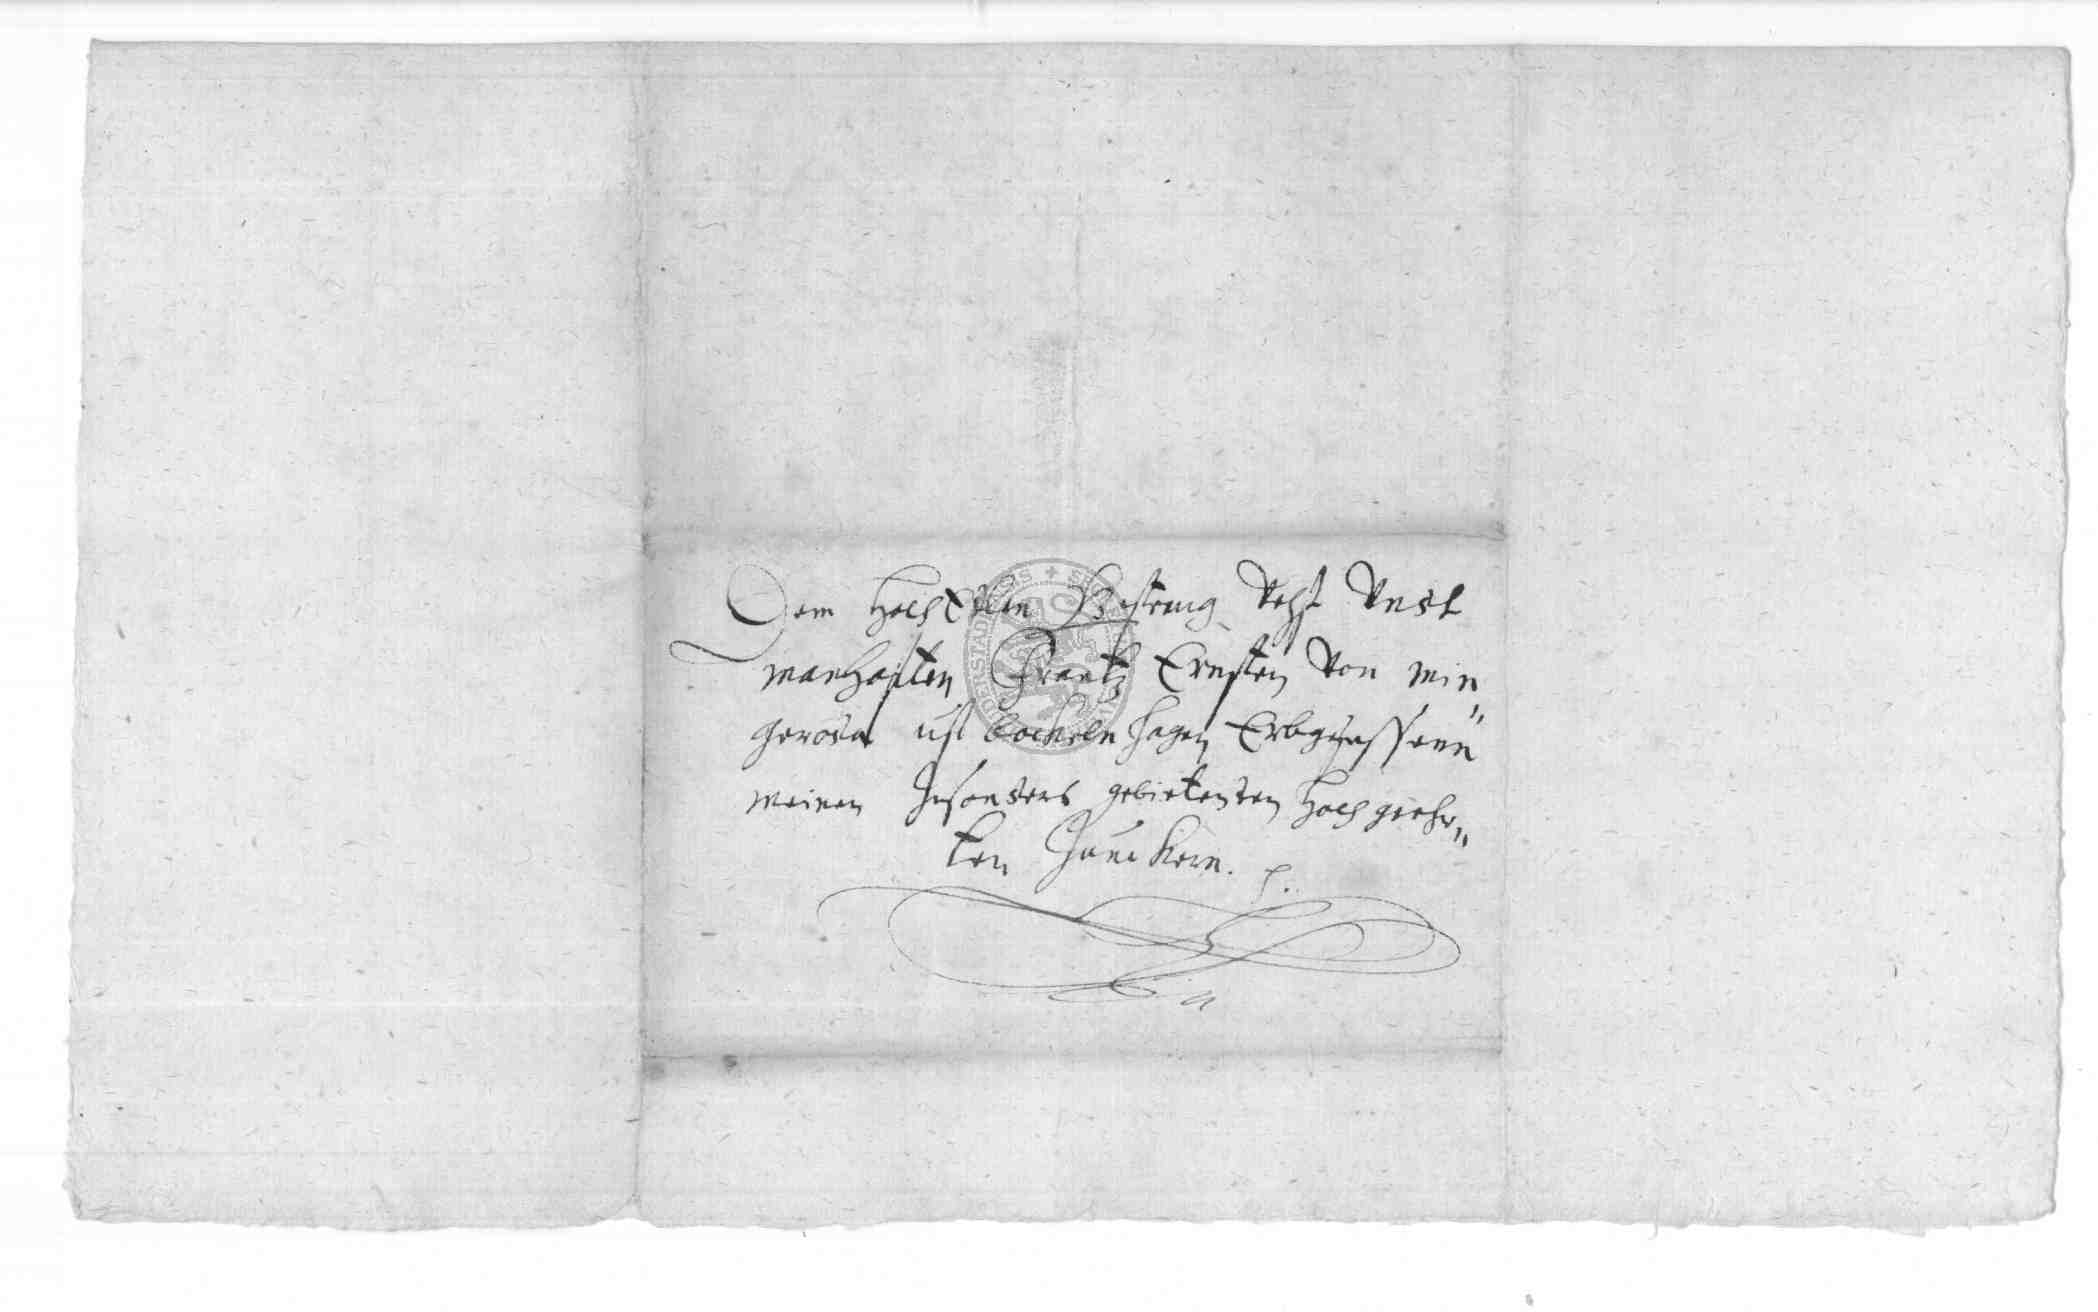 Dem HochEdlen Gestreng Vehst Vndt
manhafften Frantz Ernsten Von Min„
geroda uf bockeln hagen Erbgesessenn
meinen Insonders gebietenden Hochgeehr„
ten Junckern. p.